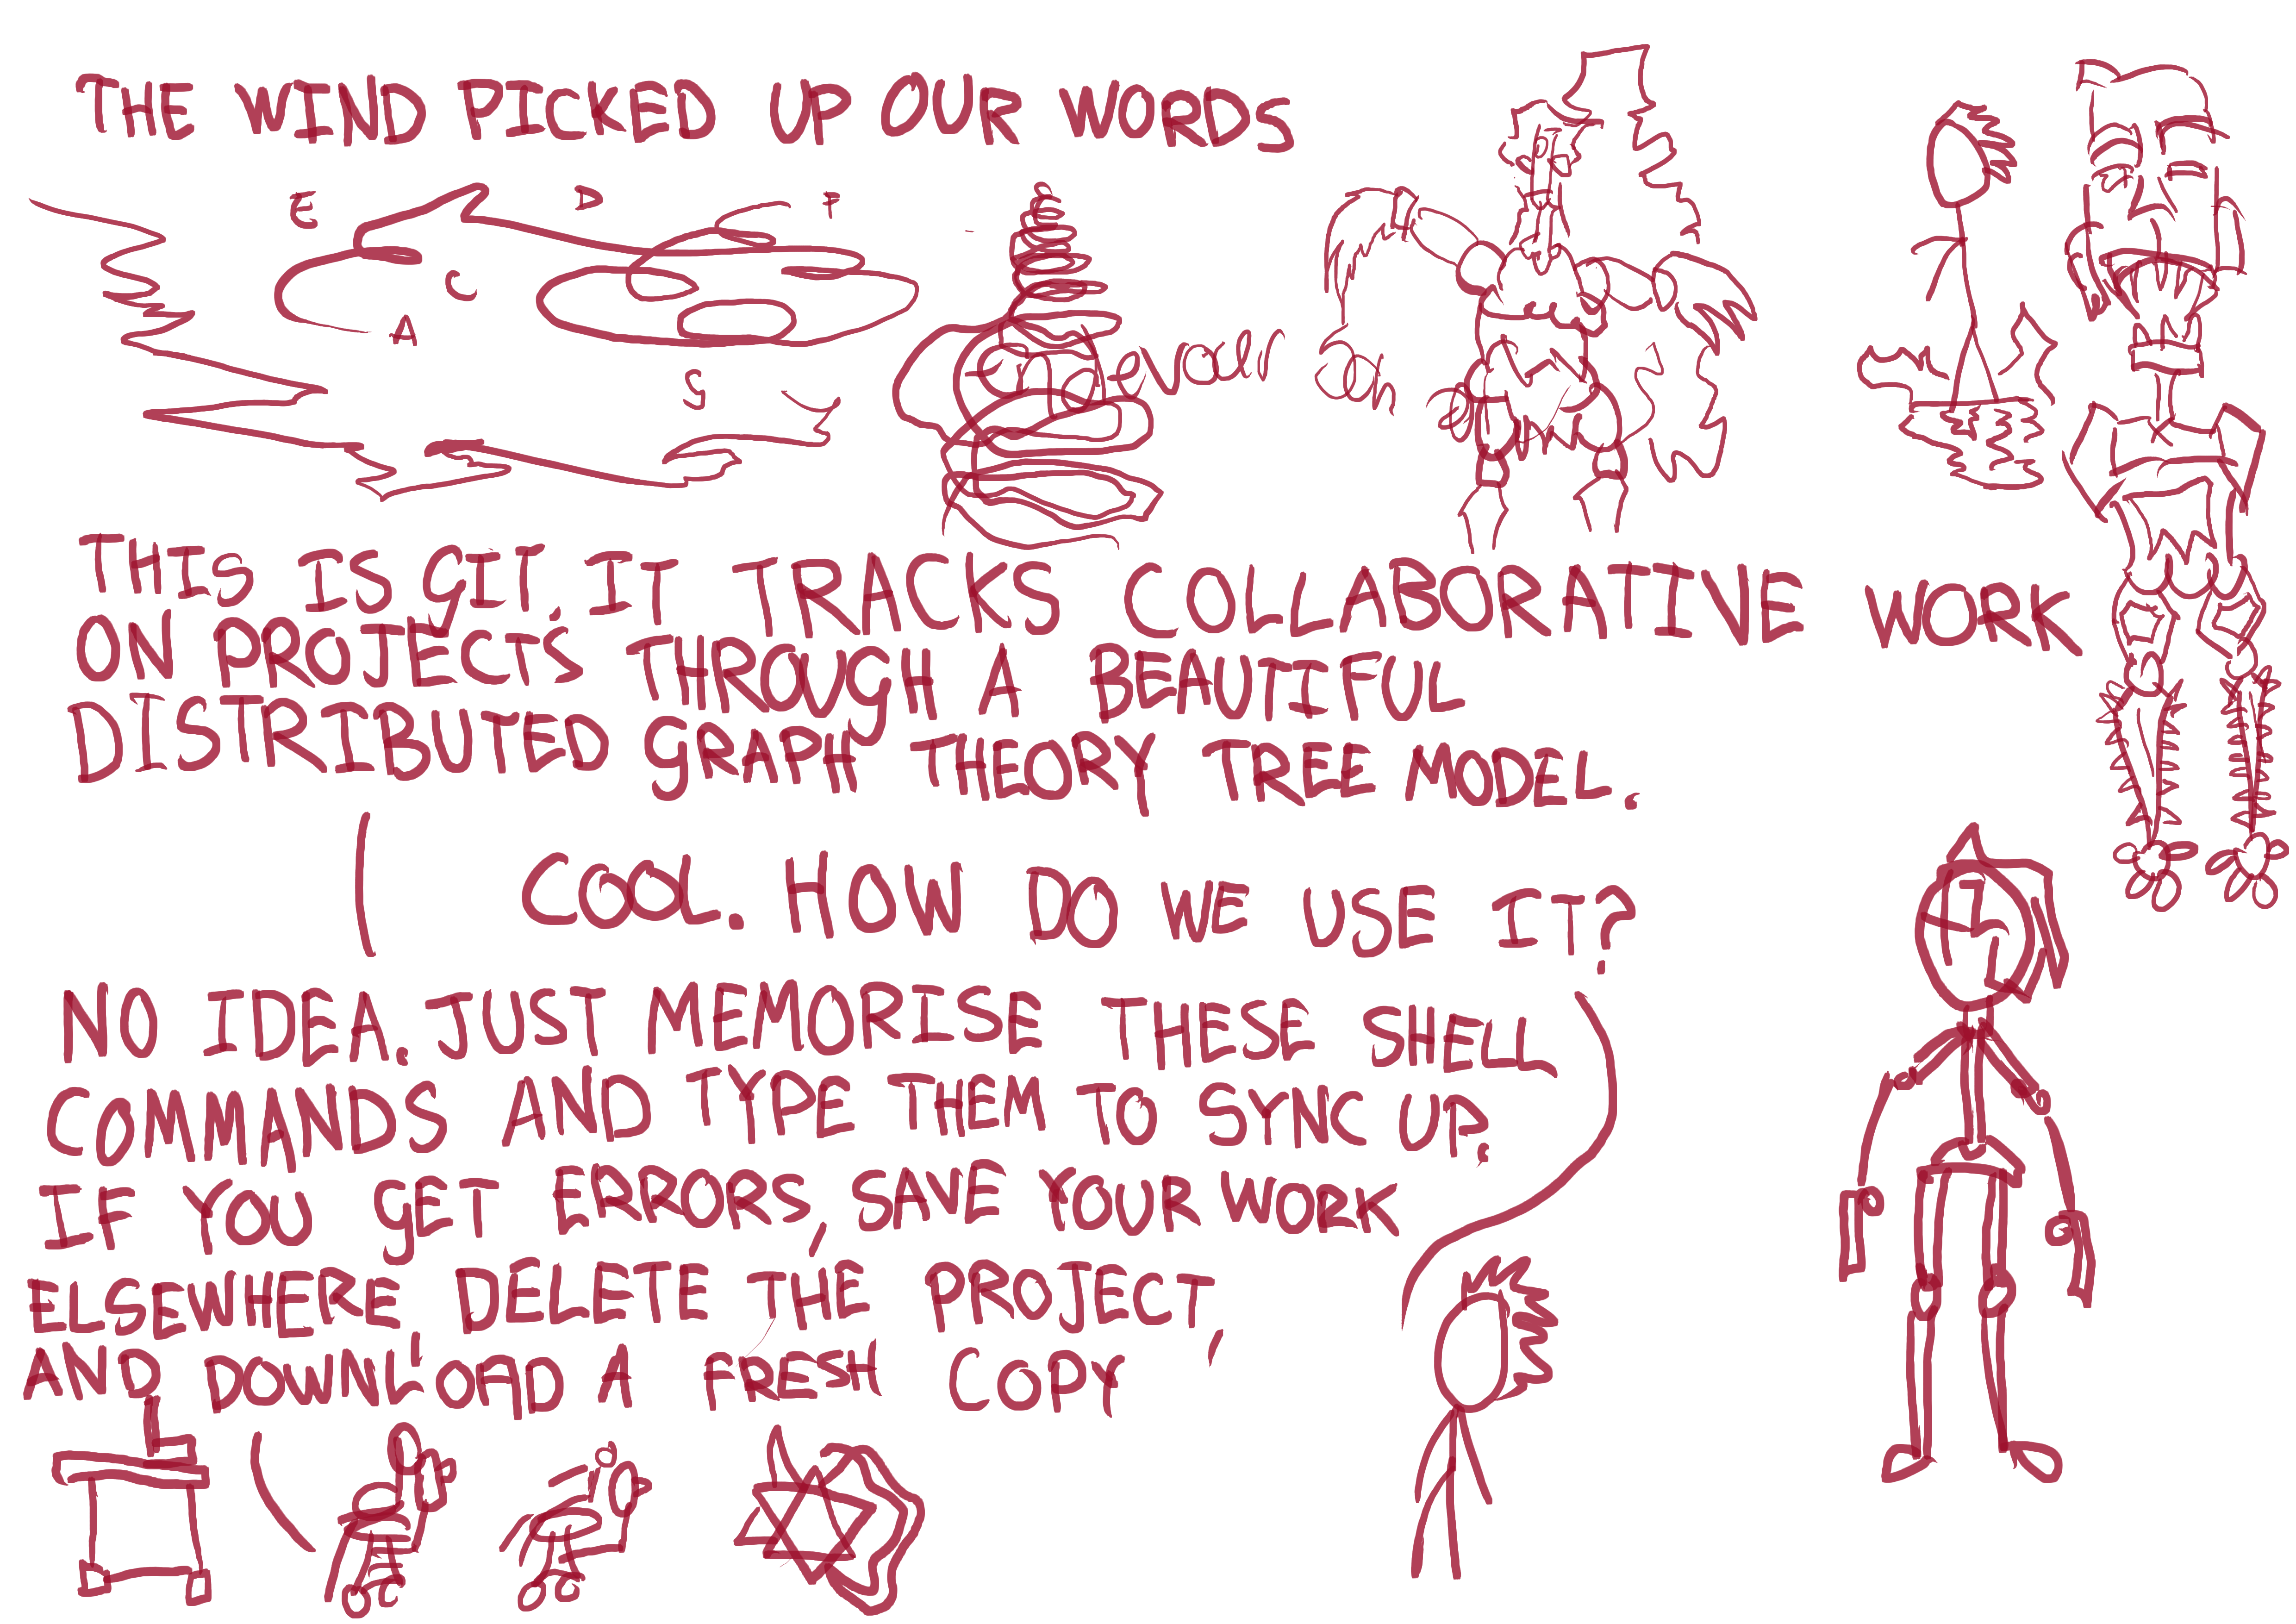 THE WIND PICKED UP OUR WORDS
E
D
F
C
A
G
THIS IS GIT. IT TRACKS COLLABORATIVE WORK
ON PROJECTS THROUGH A BEAUTIFUL
DISTRIBUTED GRAPH THEORY TREE MODEL.
COOL. HOW DO WE USE IT?
NO IDEA. JUST MEMORISE THESE SHELL
COMMANDS AND TYPE THEM TO SYNC UP.
IF YOU GET ERRORS, SAVE YOUR WORK
ELSEWHERE, DELETE THE PROJECT,
AND DOWNLOAD A FRESH COPY